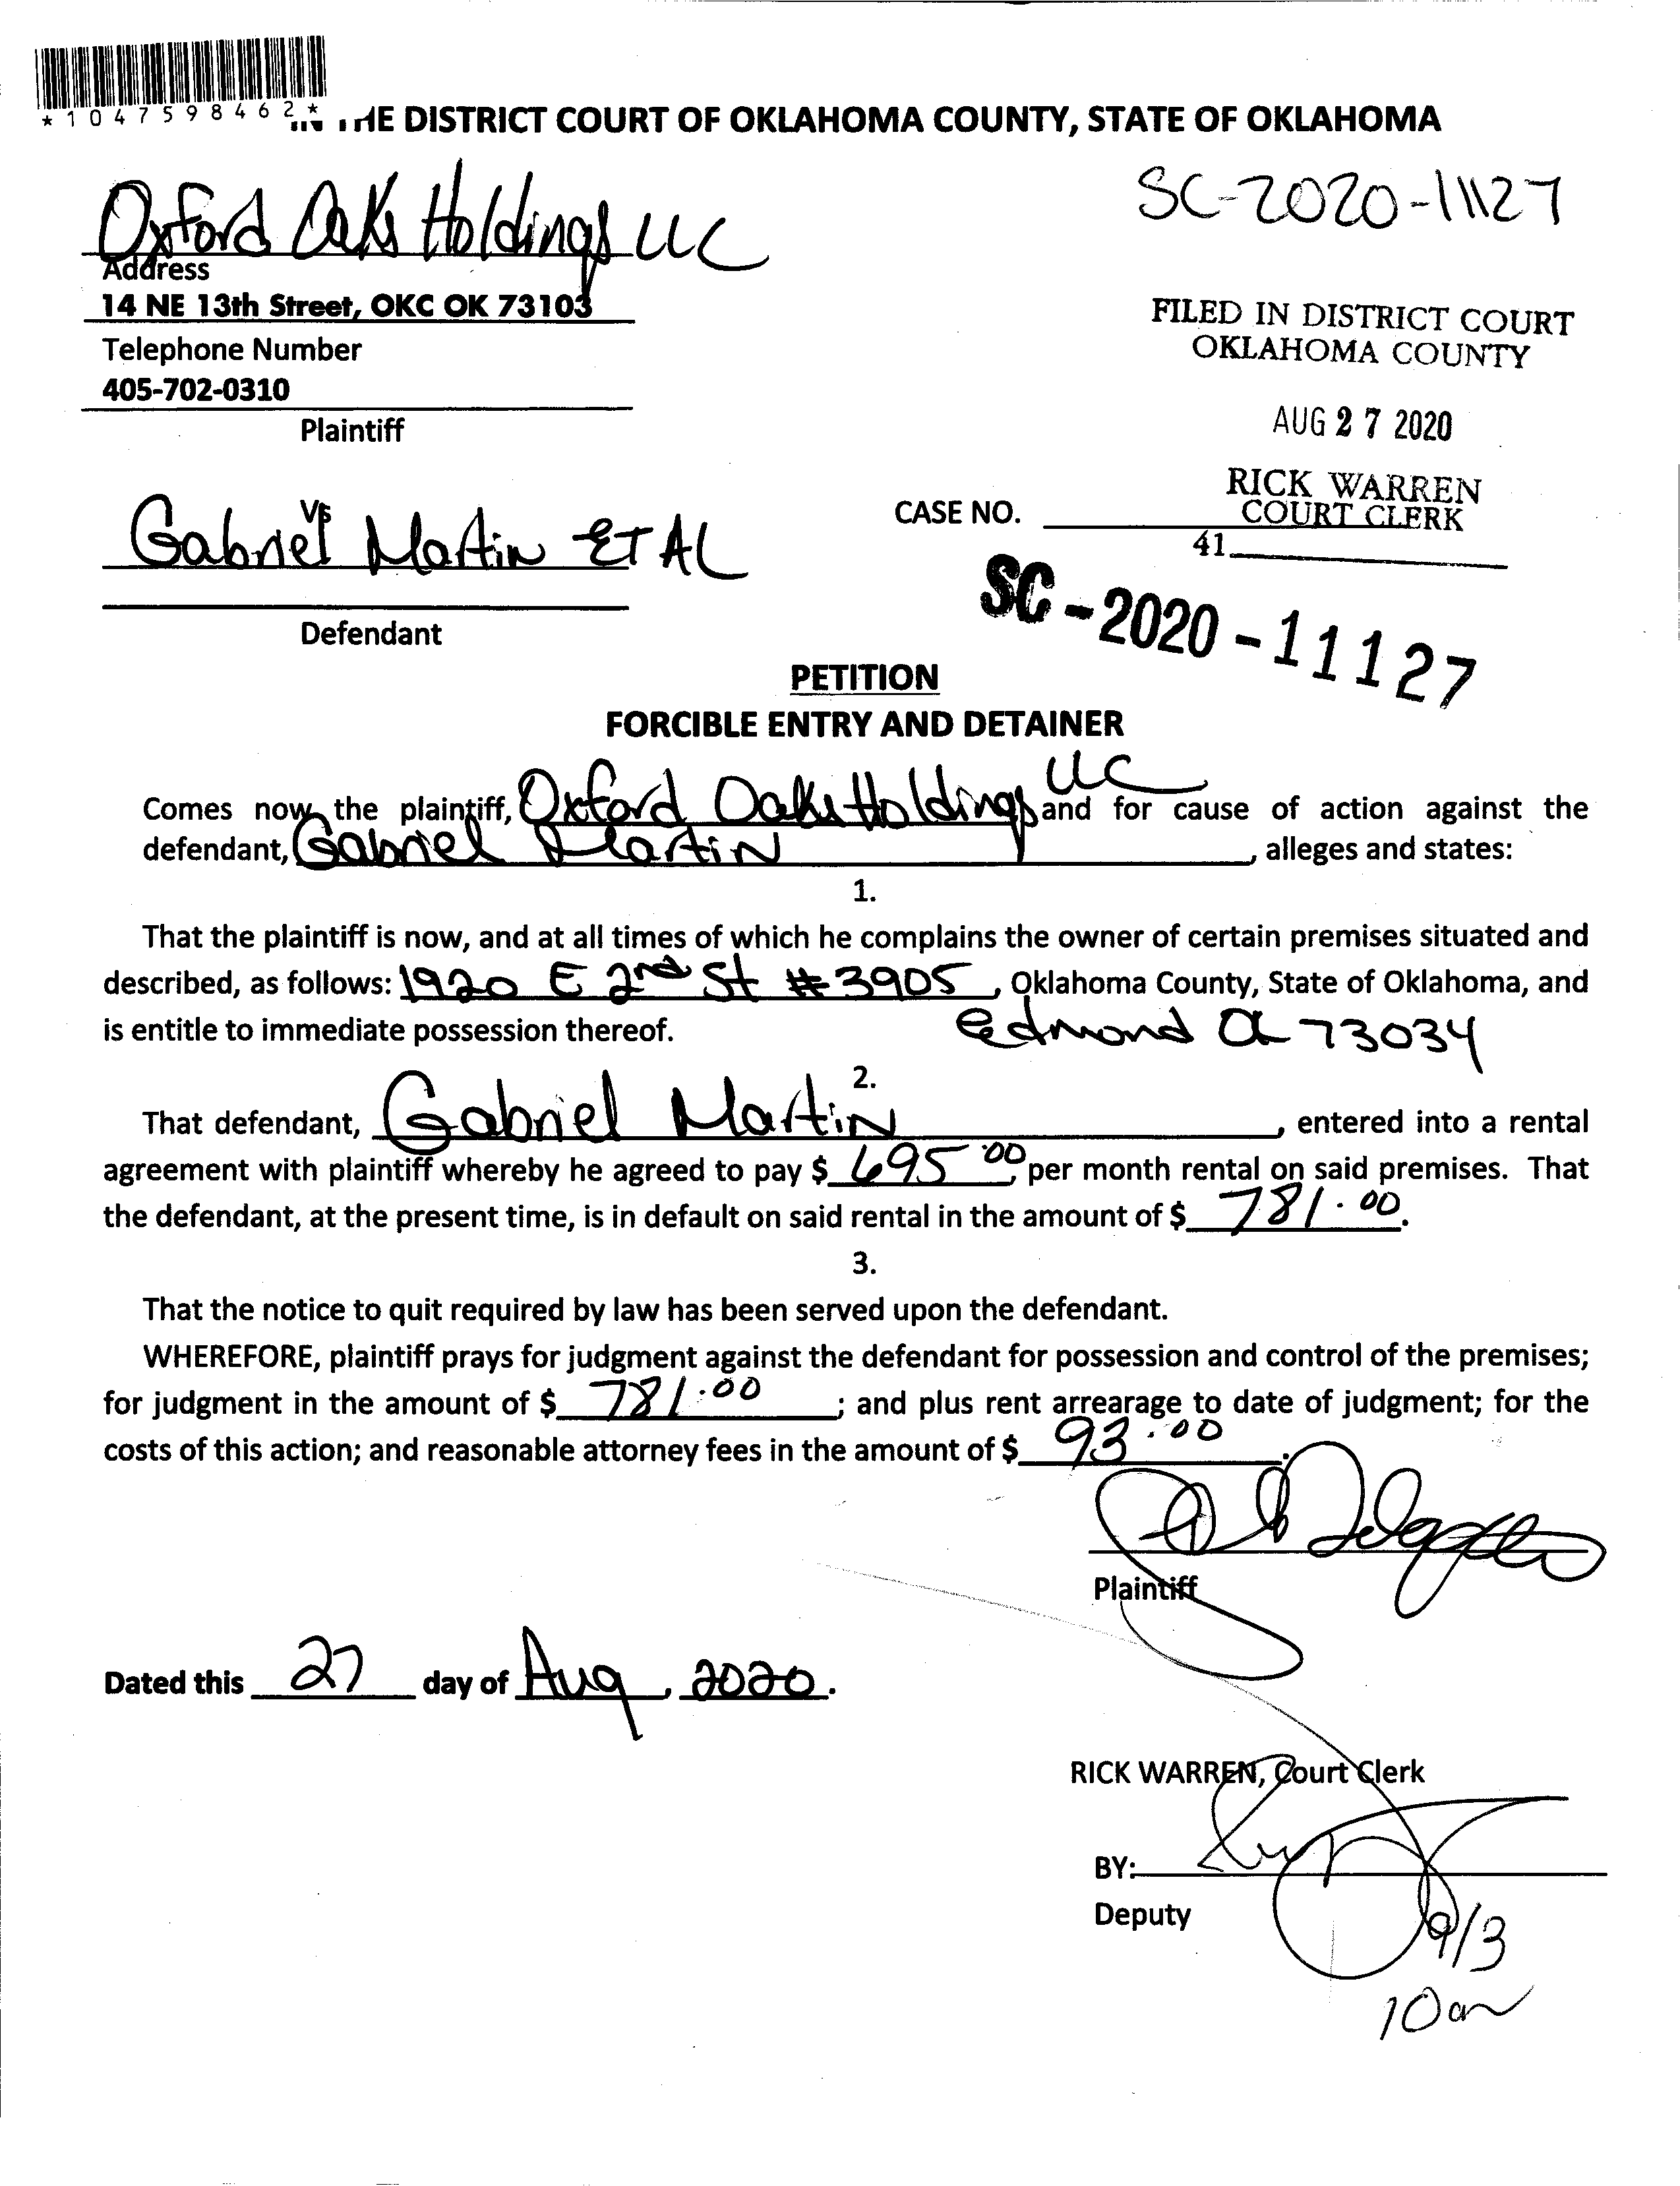 *1047598462*
THE DISTRICT COURT OF OKLAHOMA COUNTY, STATE OF OKLAHOMA
SC-2020-11127
Oxford Oaks Holdings LLC
Address
14 NE 13th Street, OKC OK 73103
Telephone Number
405-702-0310
Plaintiff
FILED IN DISTRICT COURT
OKLAHOMA COUNTY
AUG 27 2020
RICK WARREN
COURT CLERK
41
Vs
Gabriel Martin ET AL
Defendant
CASE NO.
SC-2020-11127
PETITION
FORCIBLE ENTRY AND DETAINER
Comes now the plaintiff, Oxford Oaks Holdings LLC and for cause of action against the
defendant, Gabriel Martin, alleges and states:
1.
That the plaintiff is now, and at all times of which he complains the owner of certain premises situated and
described, as follows: 1920 E 2nd St #3905, Oklahoma County, State of Oklahoma, and
is entitle to immediate possession thereof. Edmond OK 73034
2.
That defendant, Gabriel Martin, entered into a rental
agreement with plaintiff whereby he agreed to pay $ 695.00, per month rental on said premises. That
the defendant, at the present time, is in default on said rental in the amount of $ 781.00.
3.
That the notice to quit required by law has been served upon the defendant.
WHEREFORE, plaintiff prays for judgment against the defendant for possession and control of the premises;
for judgment in the amount of $ 781.00; and plus rent arrearage to date of judgment; for the
costs of this action; and reasonable attorney fees in the amount of $ 93.00.
Plaintiff
Dated this 27 day of Aug, 2020.
RICK WARREN, Court Clerk
BY:
Deputy
9/3
10am